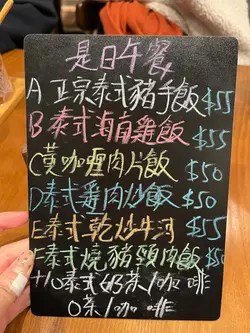 是日午餐
A 正宗泰式豬手飯 $55
B 泰式滷雞飯 $55
C 黃咖喱肉片飯 $50
D 泰式雞肉炒飯 $50
E 泰式乾炒牛河 $55
F 泰式燒豬頸肉飯 $50
+10 泰式奶茶/咖啡
0 茶/咖啡